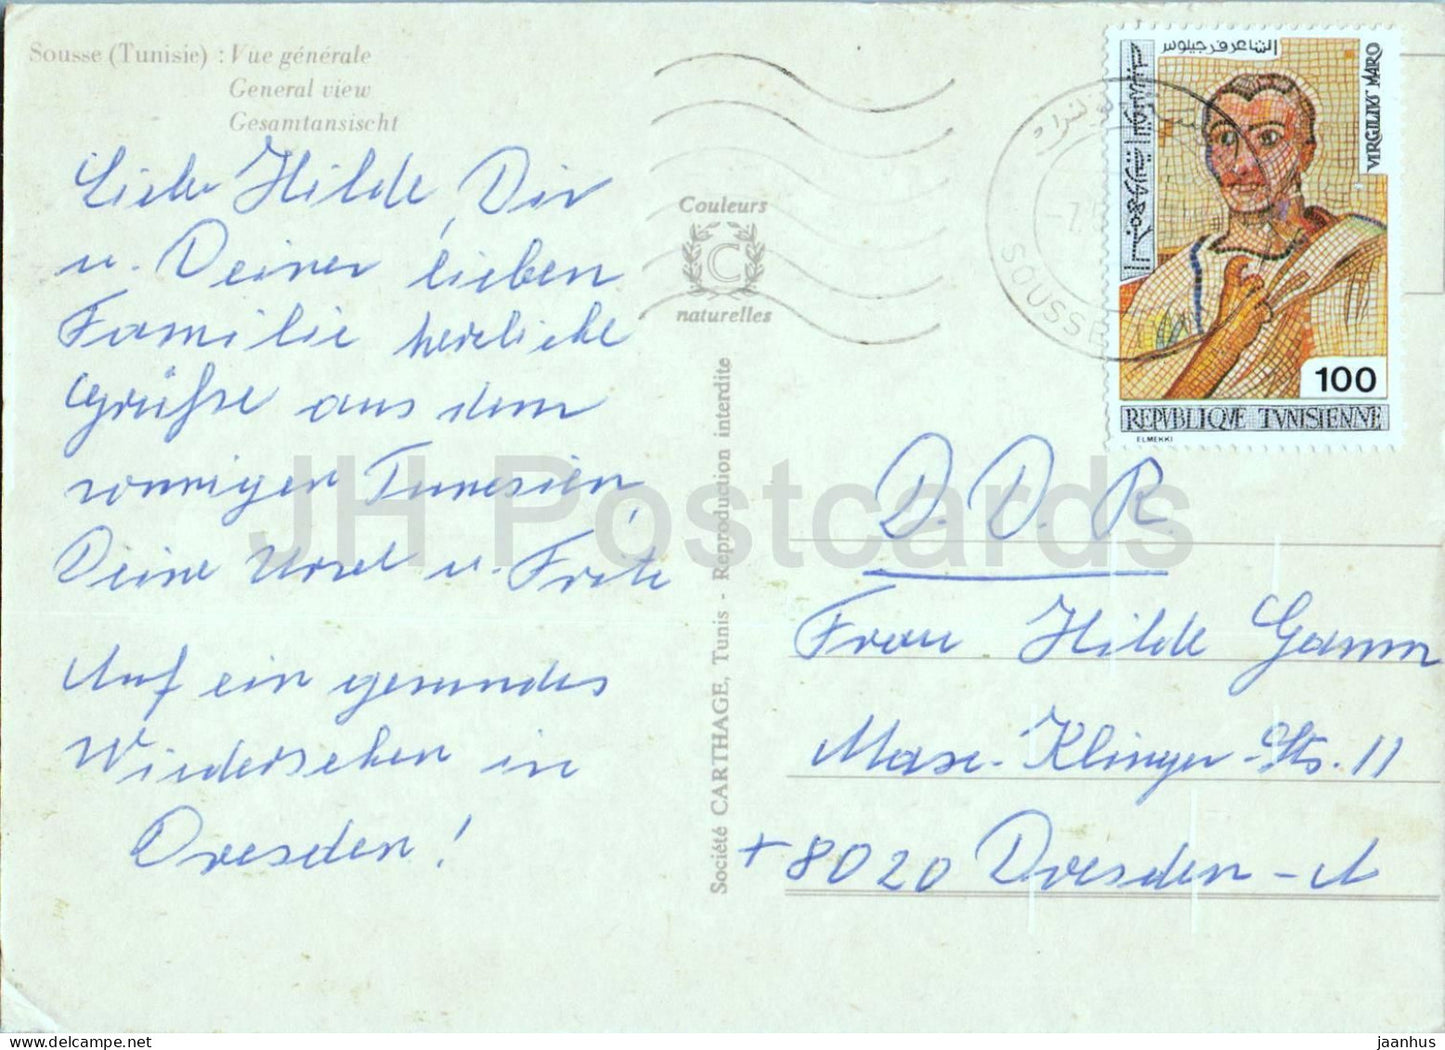 Sousse (Tunisie) : Vue générale
General view
Gesamtansischt
Liebe Hilde, Dir
u. Deiner lieben
Familie herzliche
Grüße aus dem
sonnigen Tunesien,
Deine Ursel u. Fritz
Auf ein gesundes
Wiedersehen in
Dresden!
Couleurs
C
naturelles
Société CARTHAGE, Tunis - Reproduction interdite
SOUSSE
الشاعر فرجيلوس
VIRGILIVS MARO
100
REPVBLIQVE TVNISIENNE
ELMEKKI
D.D.R.
Frau Hilde Gamm
Max-Klinger-Str. 11
+8020 Dresden-A
JH Postcards
Powered by TCPDF (www.tcpdf.org)
jaanhus